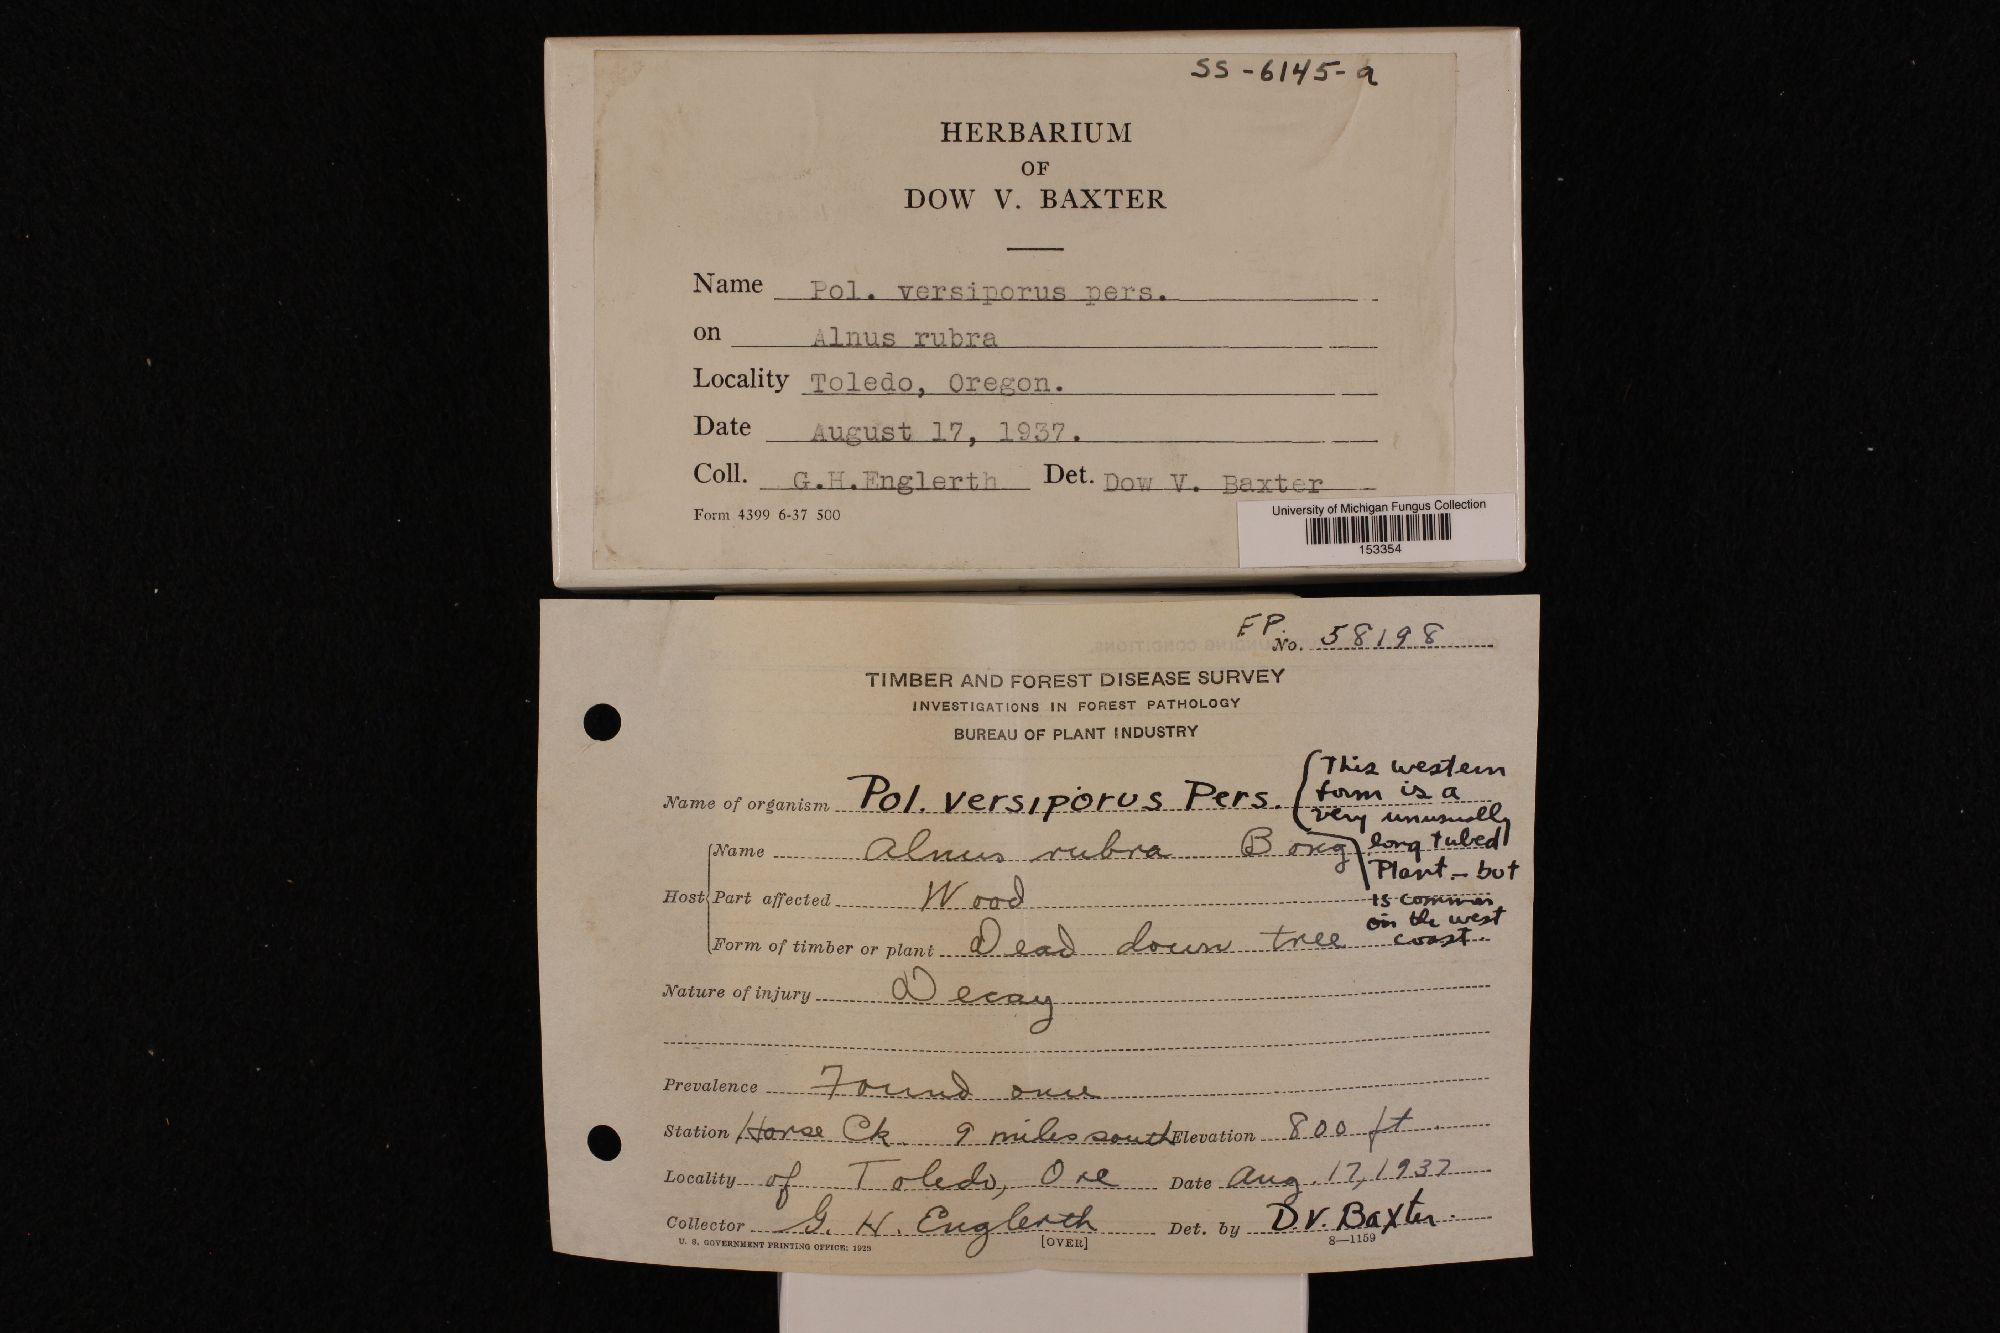 SS-6145-a
HERBARIUM
OF
DOW V. BAXTER
Name Pol. versiporus pers.
on Alnus rubra
Locality Toledo, Oregon.
Date August 17, 1937.
Coll. G.H.Englerth Det. Dow V. Baxter
Form 4399 6-37 500
University of Michigan Fungus Collection
153354
F.P. No. 58198
TIMBER AND FOREST DISEASE SURVEY
INVESTIGATIONS IN FOREST PATHOLOGY
BUREAU OF PLANT INDUSTRY
Name of organism Pol. versiporus Pers.
This western
form is a
very unusually
long tubed
Plant - but
is common
on the west
coast.
Host
Name Alnus rubra Bong
Part affected Wood
Form of timber or plant Dead down tree
Nature of injury Decay
Prevalence Found once
Station Horse Ck. 9 miles south Elevation 800 ft.
Locality of Toledo, Ore Date Aug. 17, 1937
Collector G. H. Englerth Det. by D.V. Baxter.
U. S. GOVERNMENT PRINTING OFFICE: 1928 [OVER] 8—1159